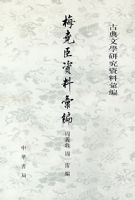 古典文學研究資料彙編
梅堯臣資料彙編
周義敢 周雷 編
中華書局